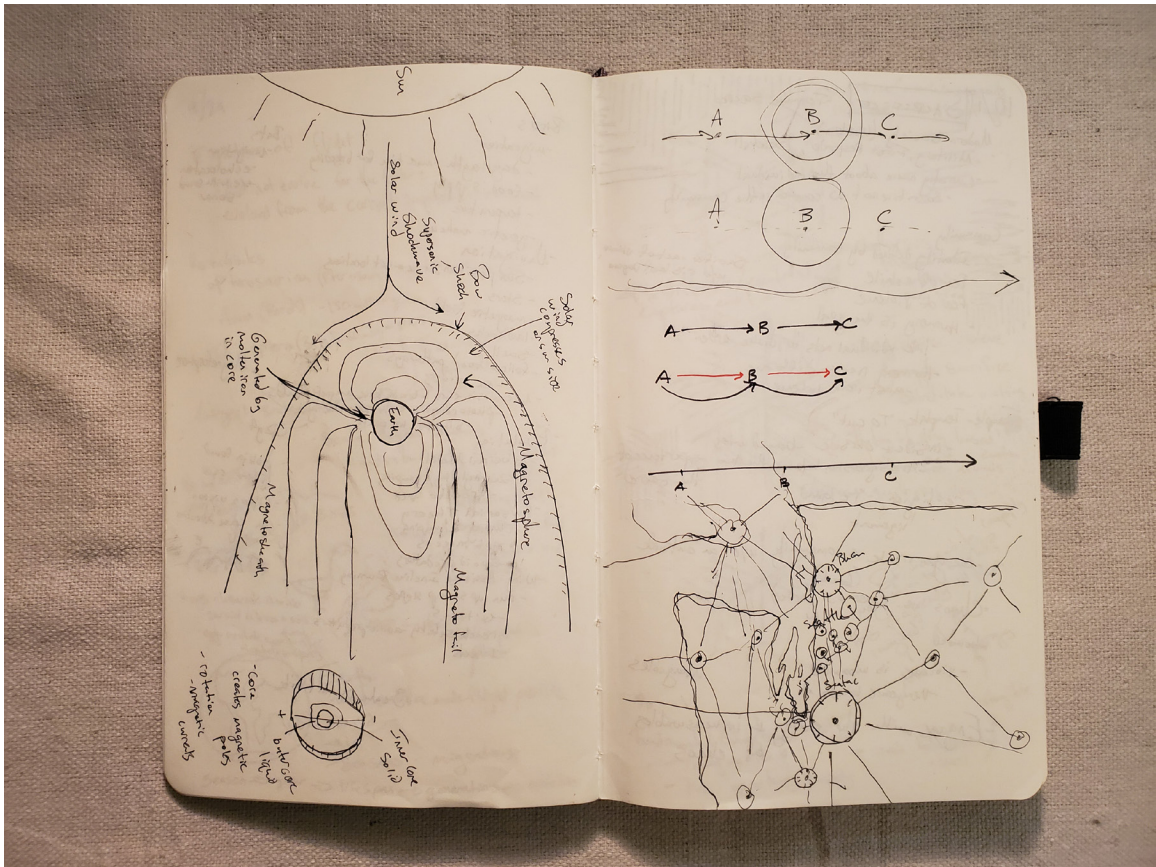 Sun
Solar wind
Supersonic
Shockwave
Bow
Shock
Solar
wind
compresses
on sun side
Generated by
molten iron
in core
Earth
Magnetosphere
Magnetosheath
Magneto tail
-core
creates magnetic
poles
-rotation
-magnetic
currents
+
-
outer core
liquid
Inner core
Solid
A
B
C
A
B
C
A
B
C
A
B
C
A
B
C